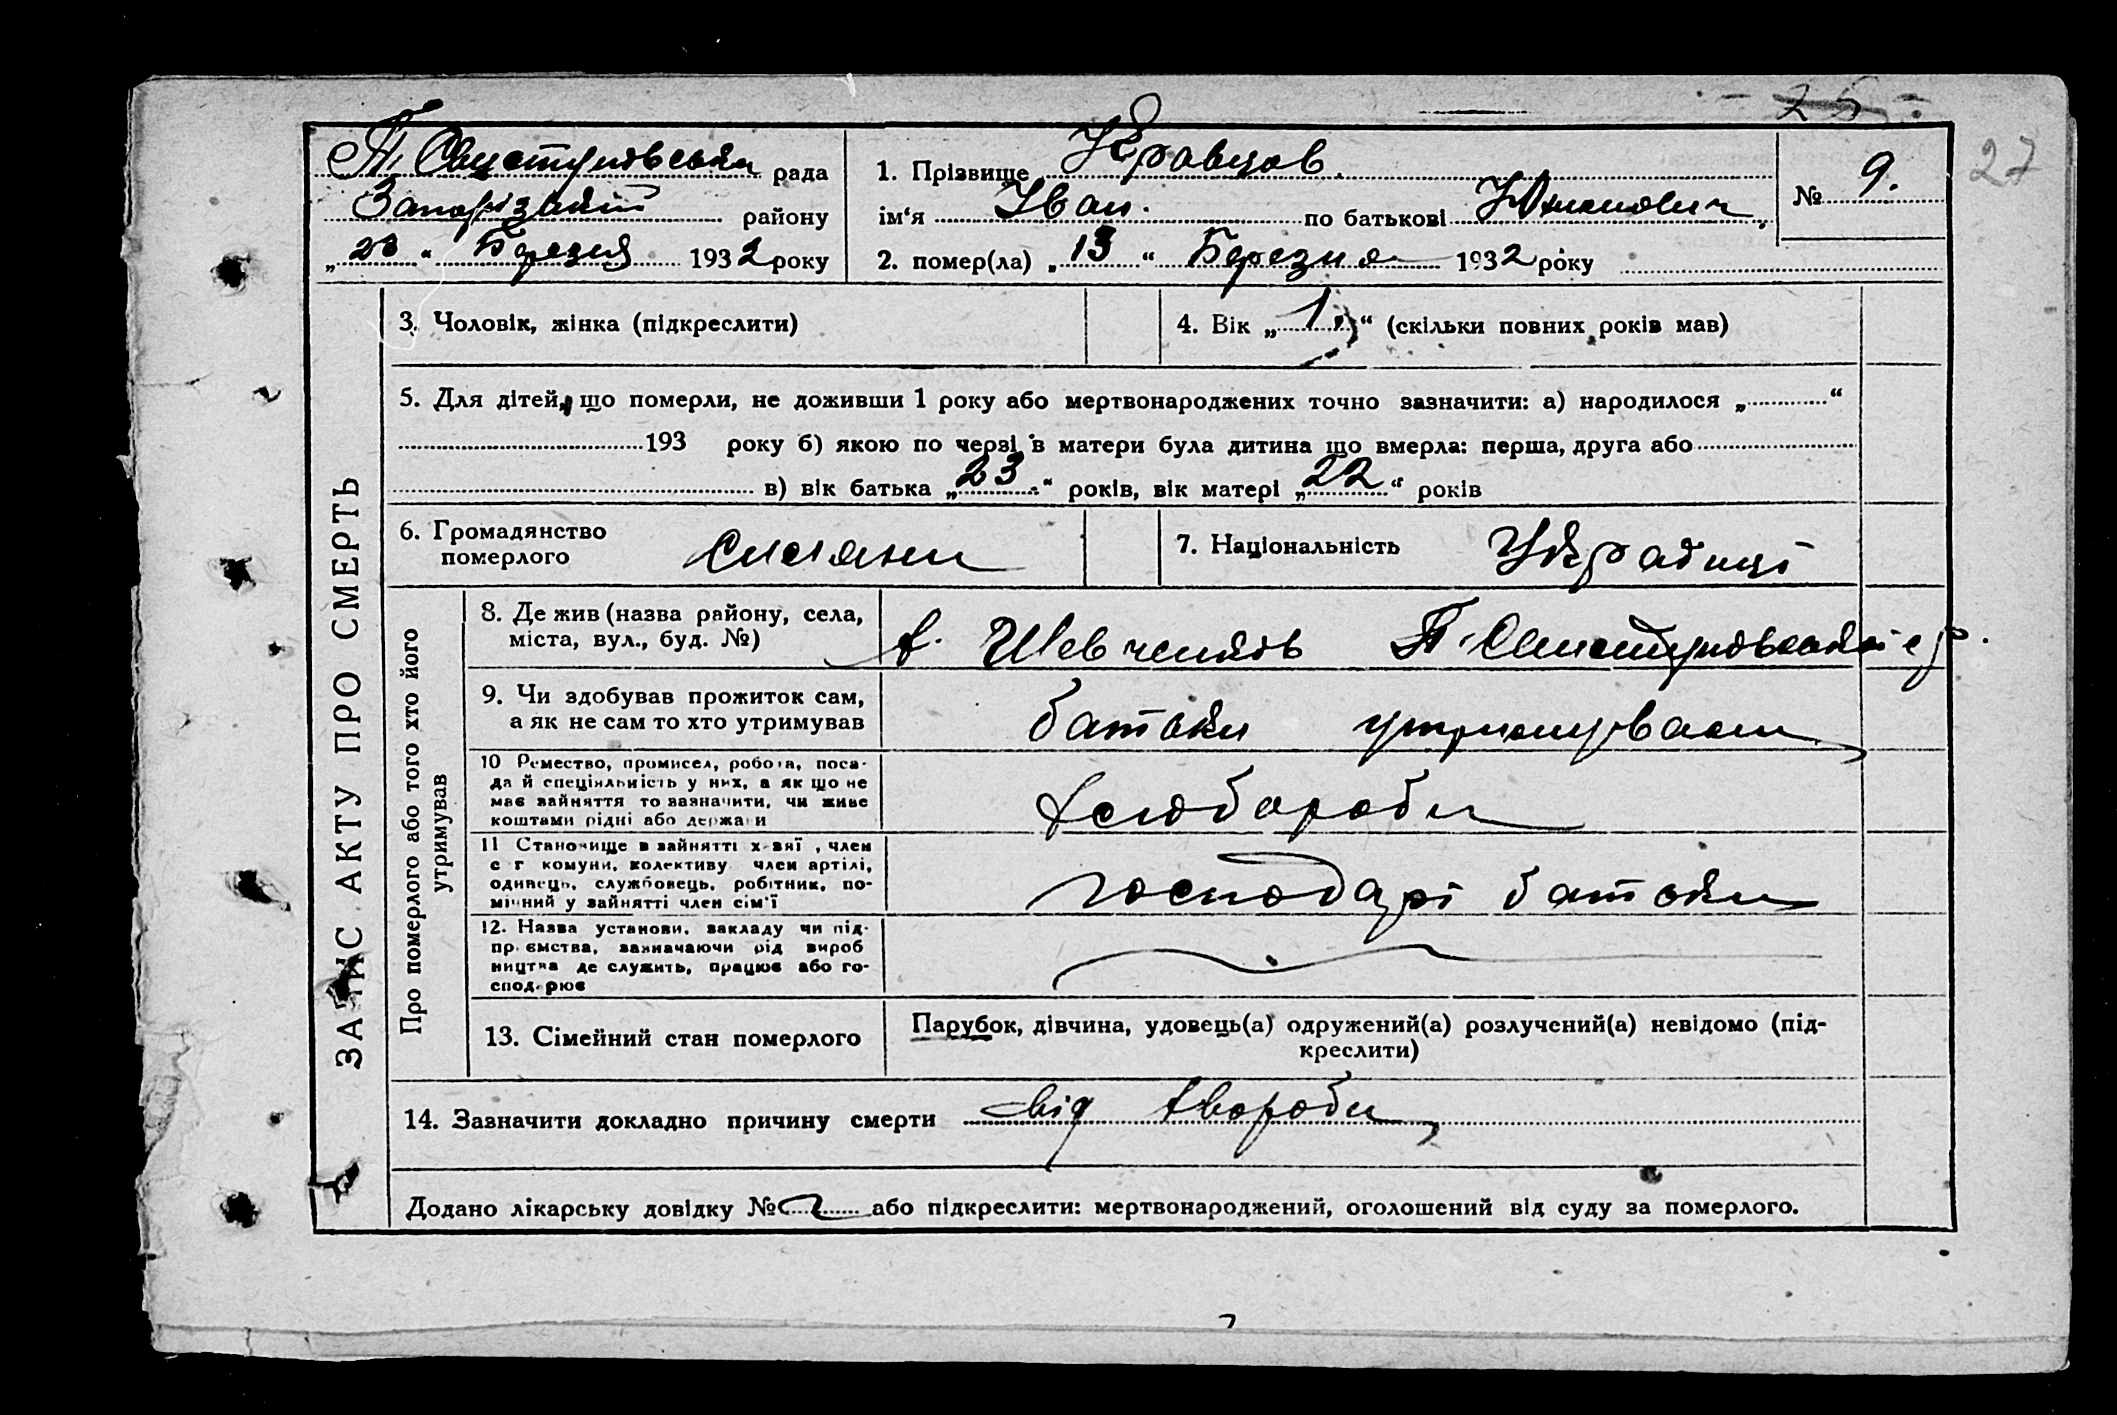 - 25 -
27
П. Свистунівська рада
Запорізький району
„ 23 “ Березня 1932 року
1. Прізвище Кравцов.
ім‘я Іван. по батькові
№ 9.
2. помер(ла) „ 13 “ Березня 1932 року
ЗАПИС АКТУ ПРО СМЕРТЬ
3. Чоловік, жінка (підкреслити)
4. Вік „ 1 “ (скільки повних років мав)
5. Для дітей, що померли, не доживши 1 року або мертвонароджених точно зазначити: а) народилося „ “
193 року б) якою по черзі в матери була дитина що вмерла: перша, друга або
в) вік батька „ 23 “ років, вік матері „ 22 “ років
6. Громадянство
померлого
селяни
7. Національність Украінці
Про померлого або того хто його
утримував
8. Де жив (назва району, села,
міста, вул., буд. №)
х. Шевченків П. Свистунівської с р.
9. Чи здобував прожиток сам,
а як не сам то хто утримував
батьки утримували
10 Ремество, промисел, робота, поса-
да й спеціяльність у них, а як що не
має зайняття то зазначити, чи живе
коштами рідні або держави
хлібороби
11 Становище в зайнятті х-вяї , член
с г комуни, колективу член артілі,
одинець, службовець, робітник, по-
мічний у зайнятті член сім'ї
господарі батьки
12. Назва установи, закладу чи під-
приємства, зазначаючи рід вироб
ництва де служить, працює або го-
сподарює
13. Сімейний стан померлого
Парубок, дівчина, удовець(а) одружений(а) розлучений(а) невідомо (під-
креслити)
14. Зазначити докладно причину смерти від хвороби
Додано лікарську довідку № або підкреслити: мертвонароджений, оголошений від суду за померлого.